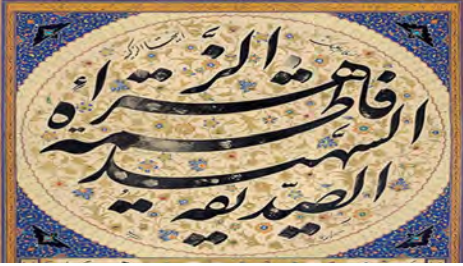 الصّدّيقه
الشهيده
فاطمه
الزهراء